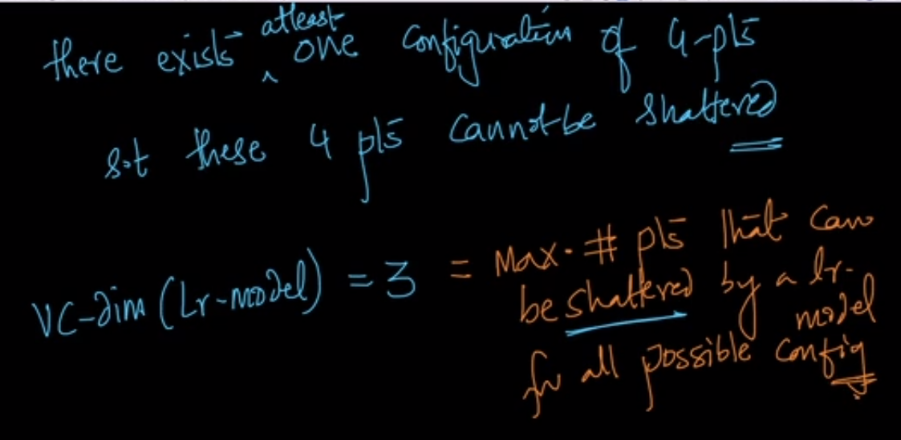 there exists atleast one configuration of 4-pts
s.t these 4 pts cannot be shattered
VC-dim (Lr-model) = 3 = Max. # pts that can
be shattered by a lr-
model
for all possible config